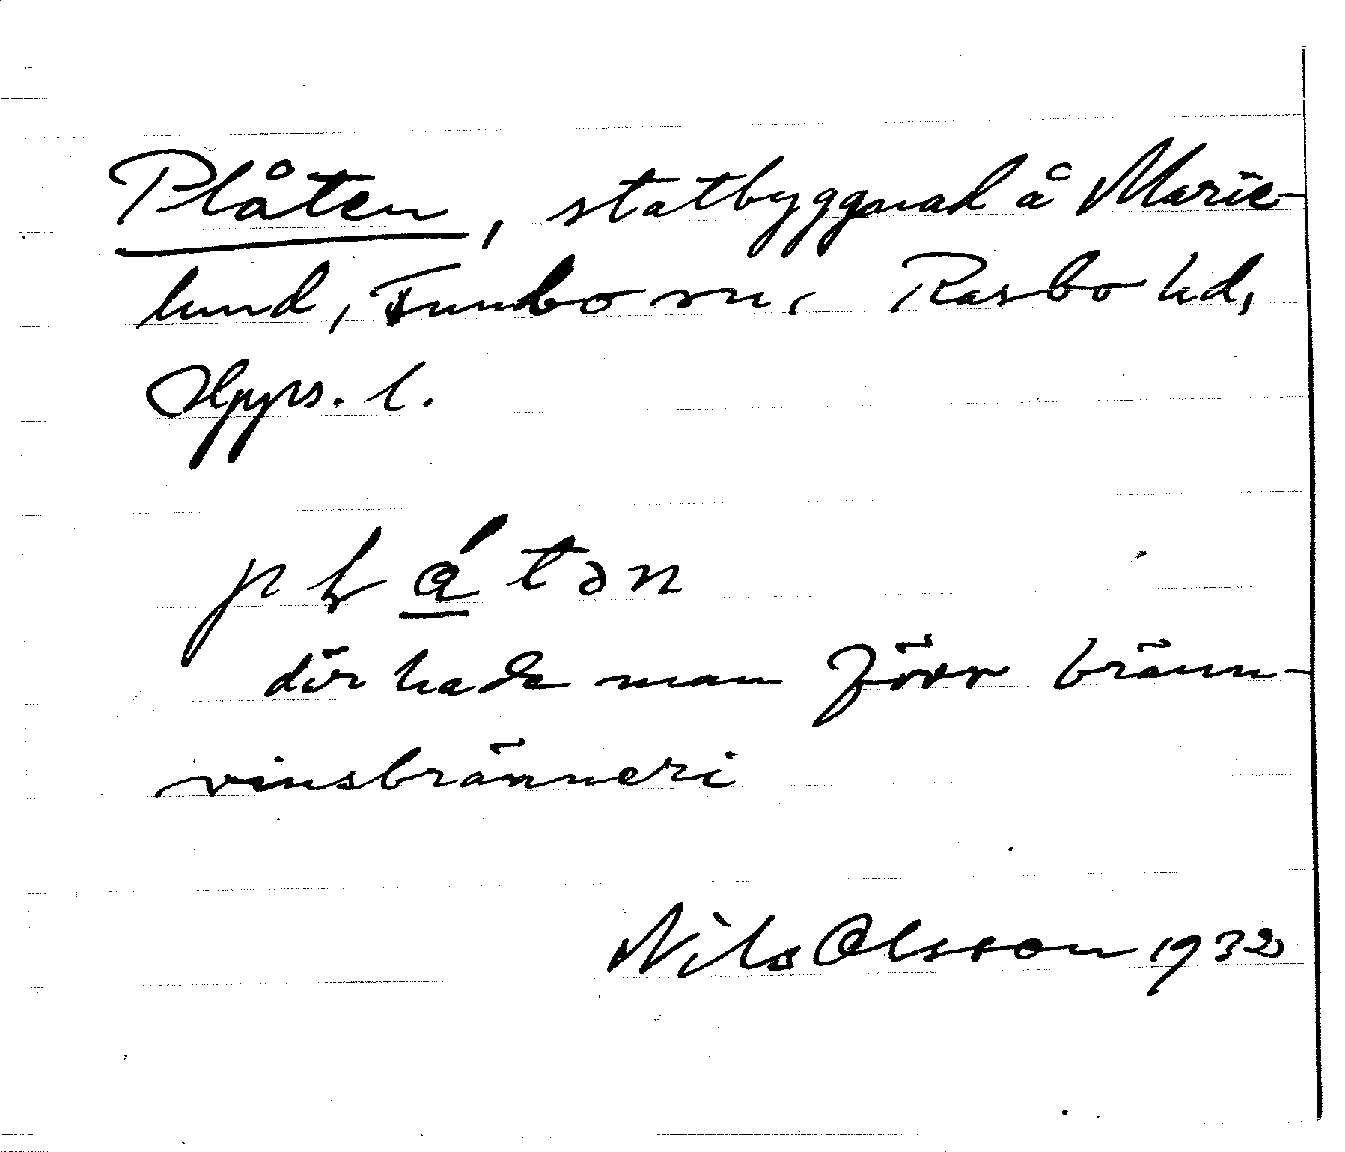 Plåten, statbyggnad å Marie-
lund, Funbo sn, Rasbo hd,
Upps. l.
plǻtən
där hade man förr bränn-
vinsbränneri
Nils Olsson 1932